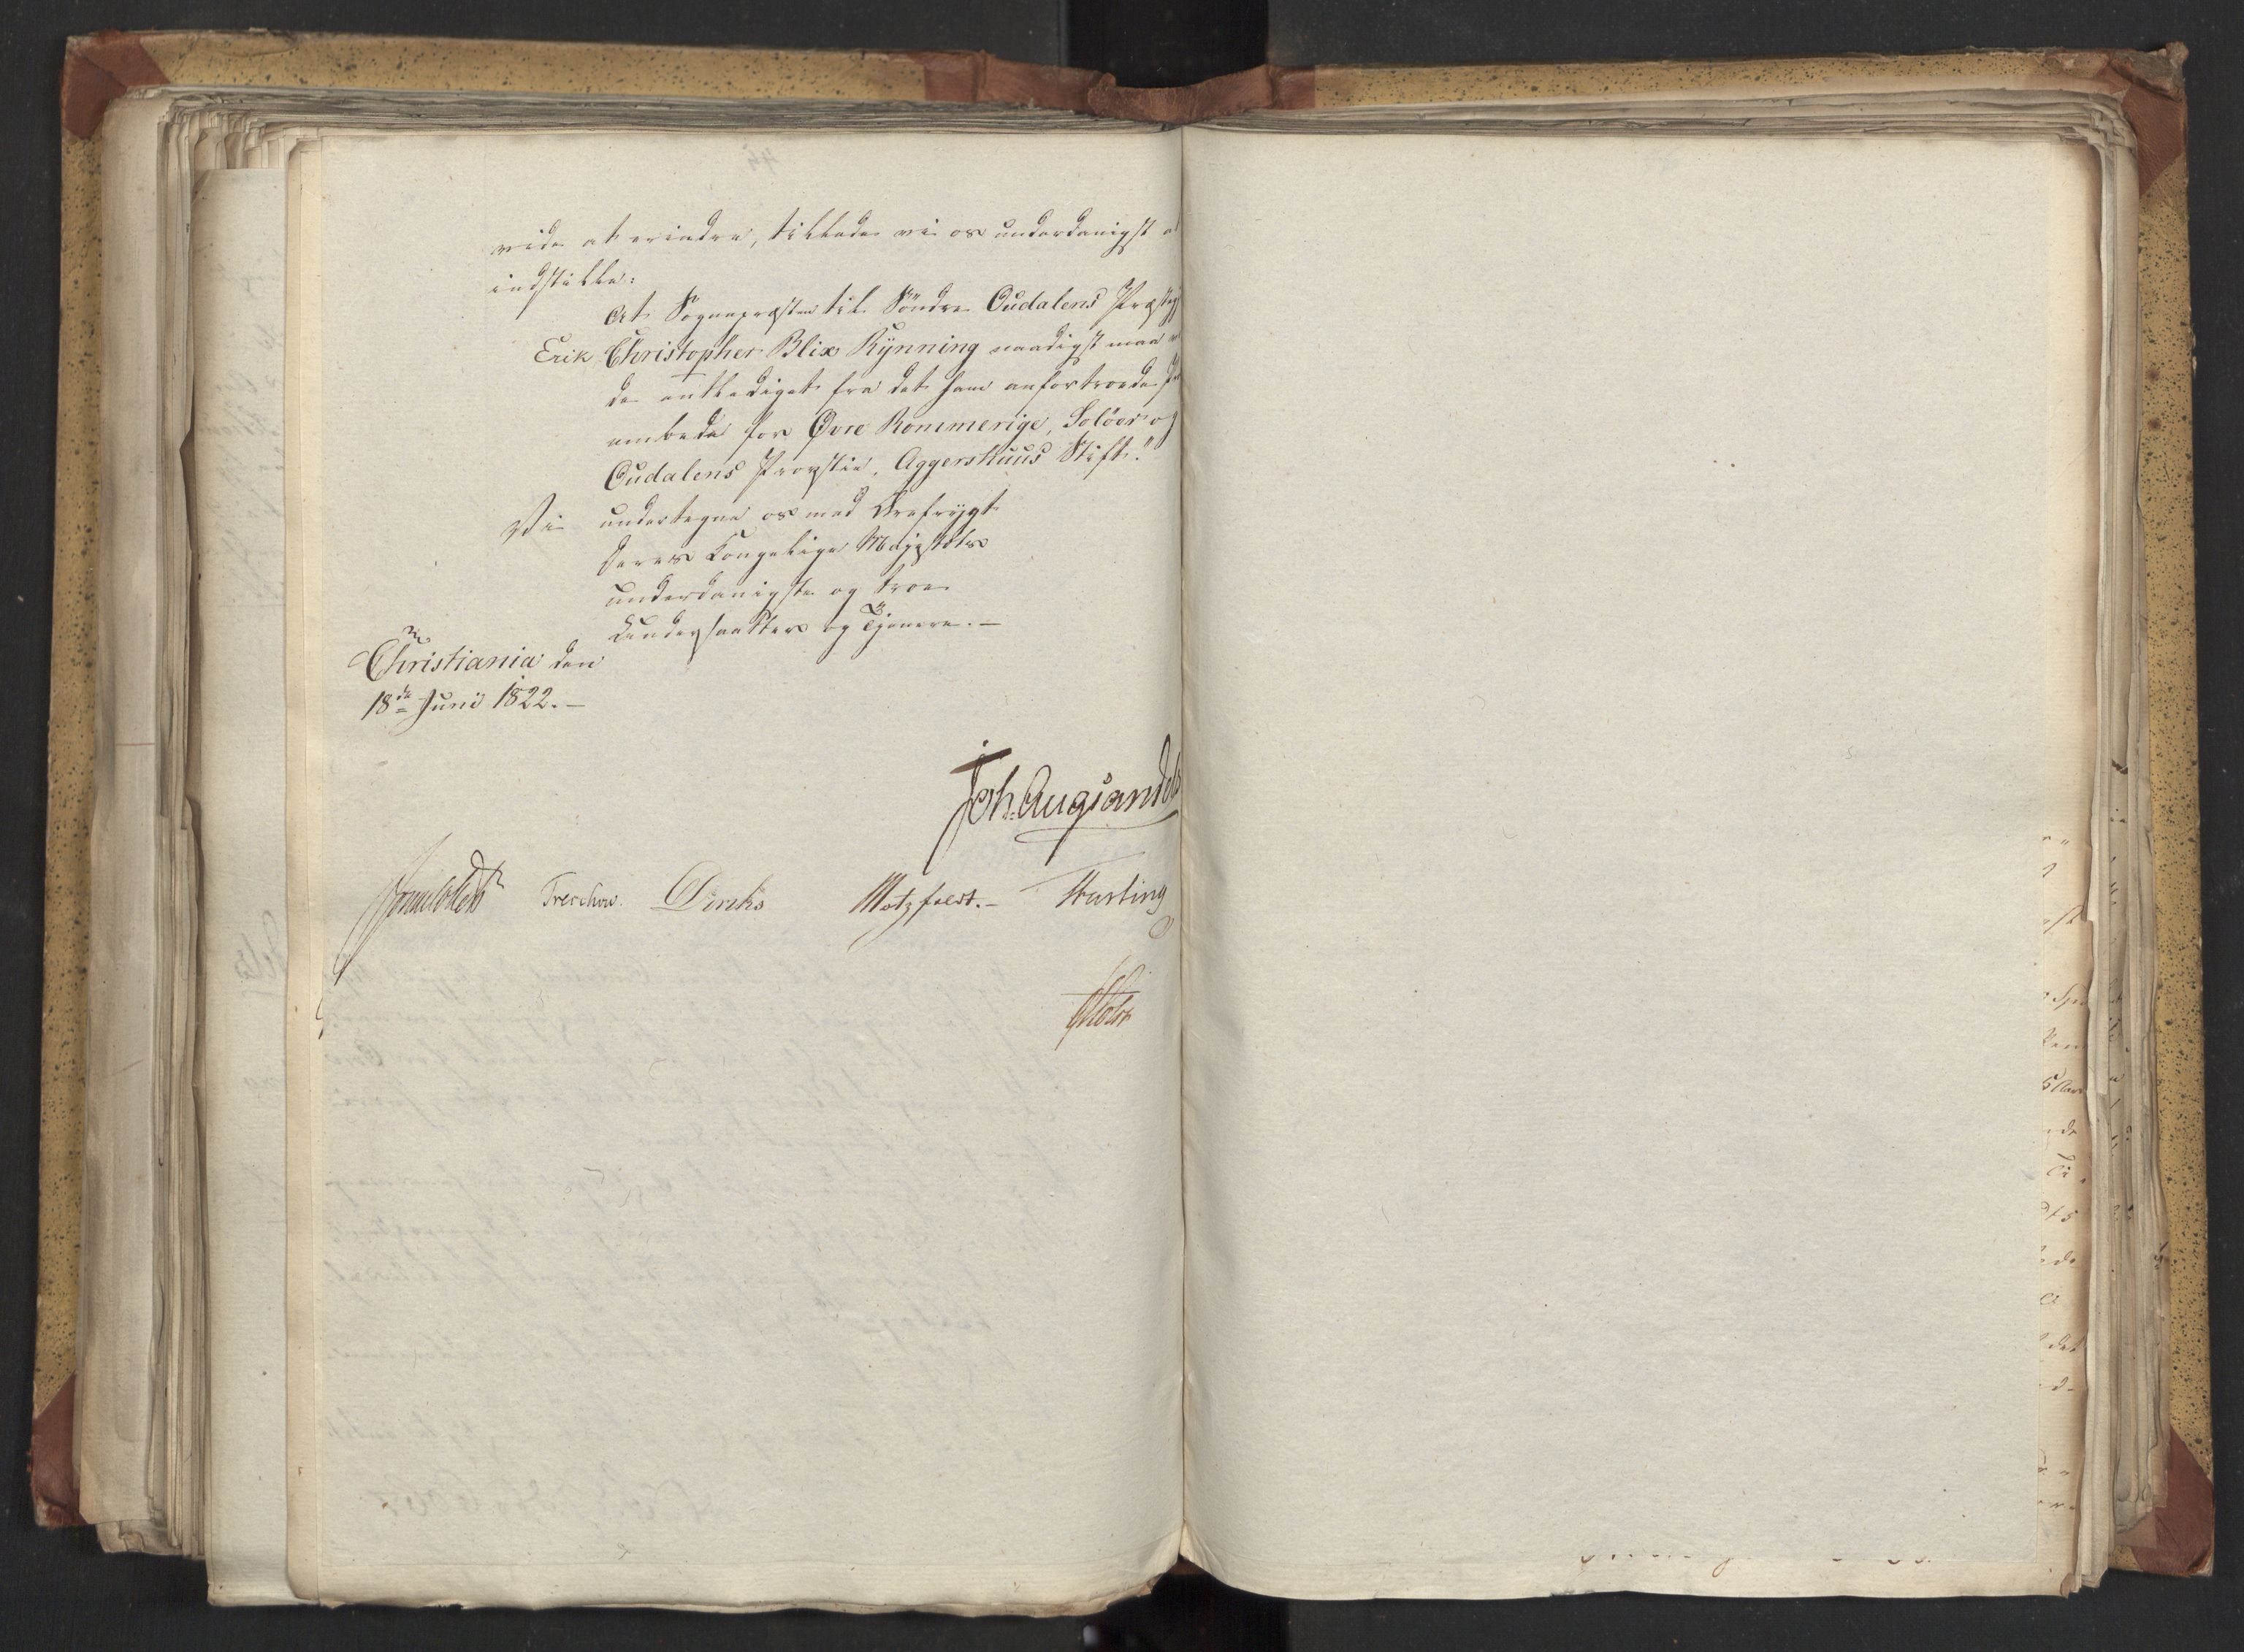 vide at erindre, tillade vi os underdanigst a
indstille:
At Sognepræsten til Söndre Oudalens Præsteg
Erik Christopher Blix Rÿnning naadigst maa
de entlediget fra det ham anfortroede
embede for Øvre Rommerige, Solöer og
Oudalens Provstie, Aggershuus Stift."
Vi undertegne os med Ærefrÿgt
Deres Kongelige Majestæts
underdanigste og troe
Undersaatter og Tjenere. —
Christiania den
18de Juni 1822. —
Joh. Aug Sandels
Sommerhielm Treschow. Diriks Motzfeldt. — Fasting
Holst